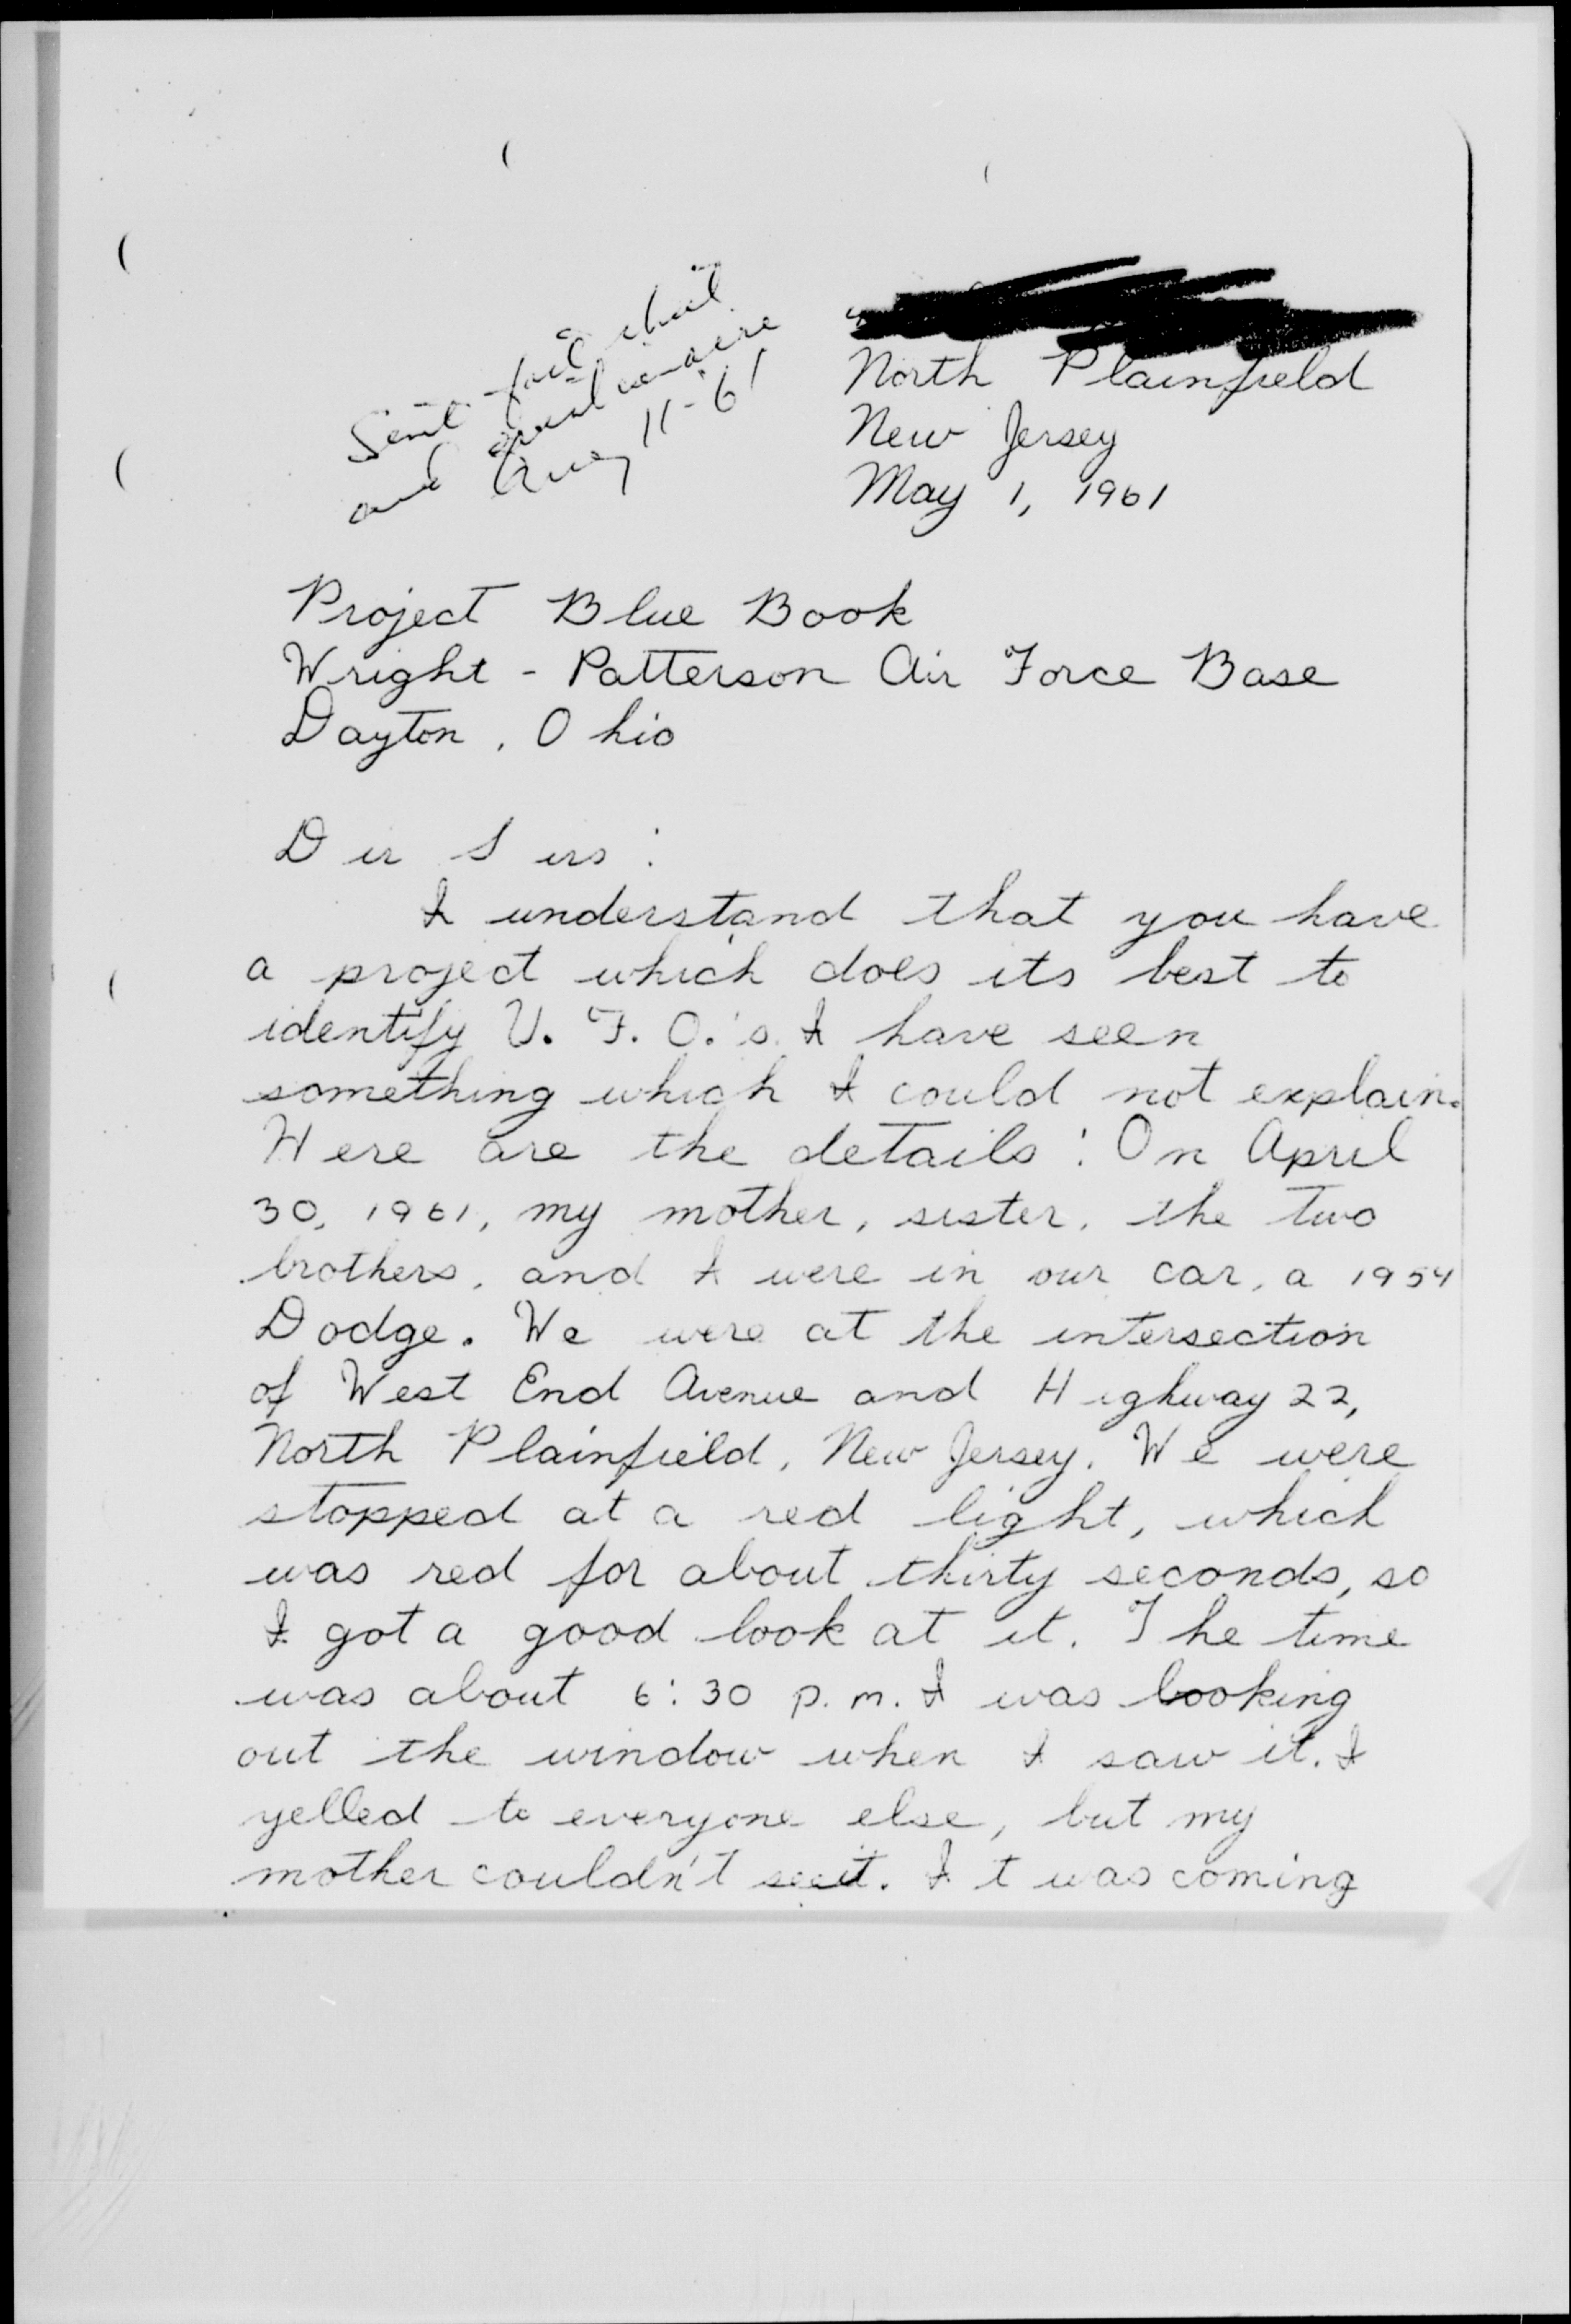 Sent fact sheet
and questionnaire
11-61
North Plainfield
New Jersey
May 1, 1961
Project Blue Book
Wright - Patterson Air Force Base
Dayton, Ohio
Der Sirs:
I understand that you have
a project which does its best to
identify U. F. O.'s. I have seen
something which I could not explain.
Here are the details: On April
30, 1961, my mother, sister, the two
brothers, and I were in our car, a 1954
Dodge. We were at the intersection
of West End Avenue and Highway 22,
North Plainfield, New Jersey. We were
stopped at a red light, which
was red for about thirty seconds, so
I got a good look at it. The time
was about 6:30 p.m. I was looking
out the window when I saw it. I
yelled to everyone else, but my
mother couldn't see it. It was coming